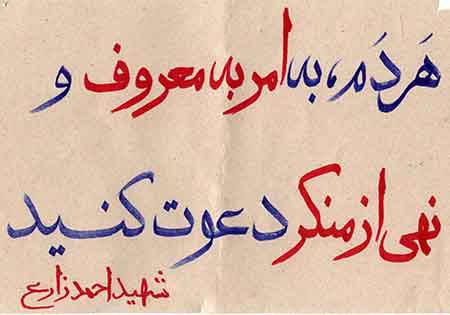 هَر دَم، به امر به معروف و
نهی از منکر دعوت کنید
شهید احمد زارع